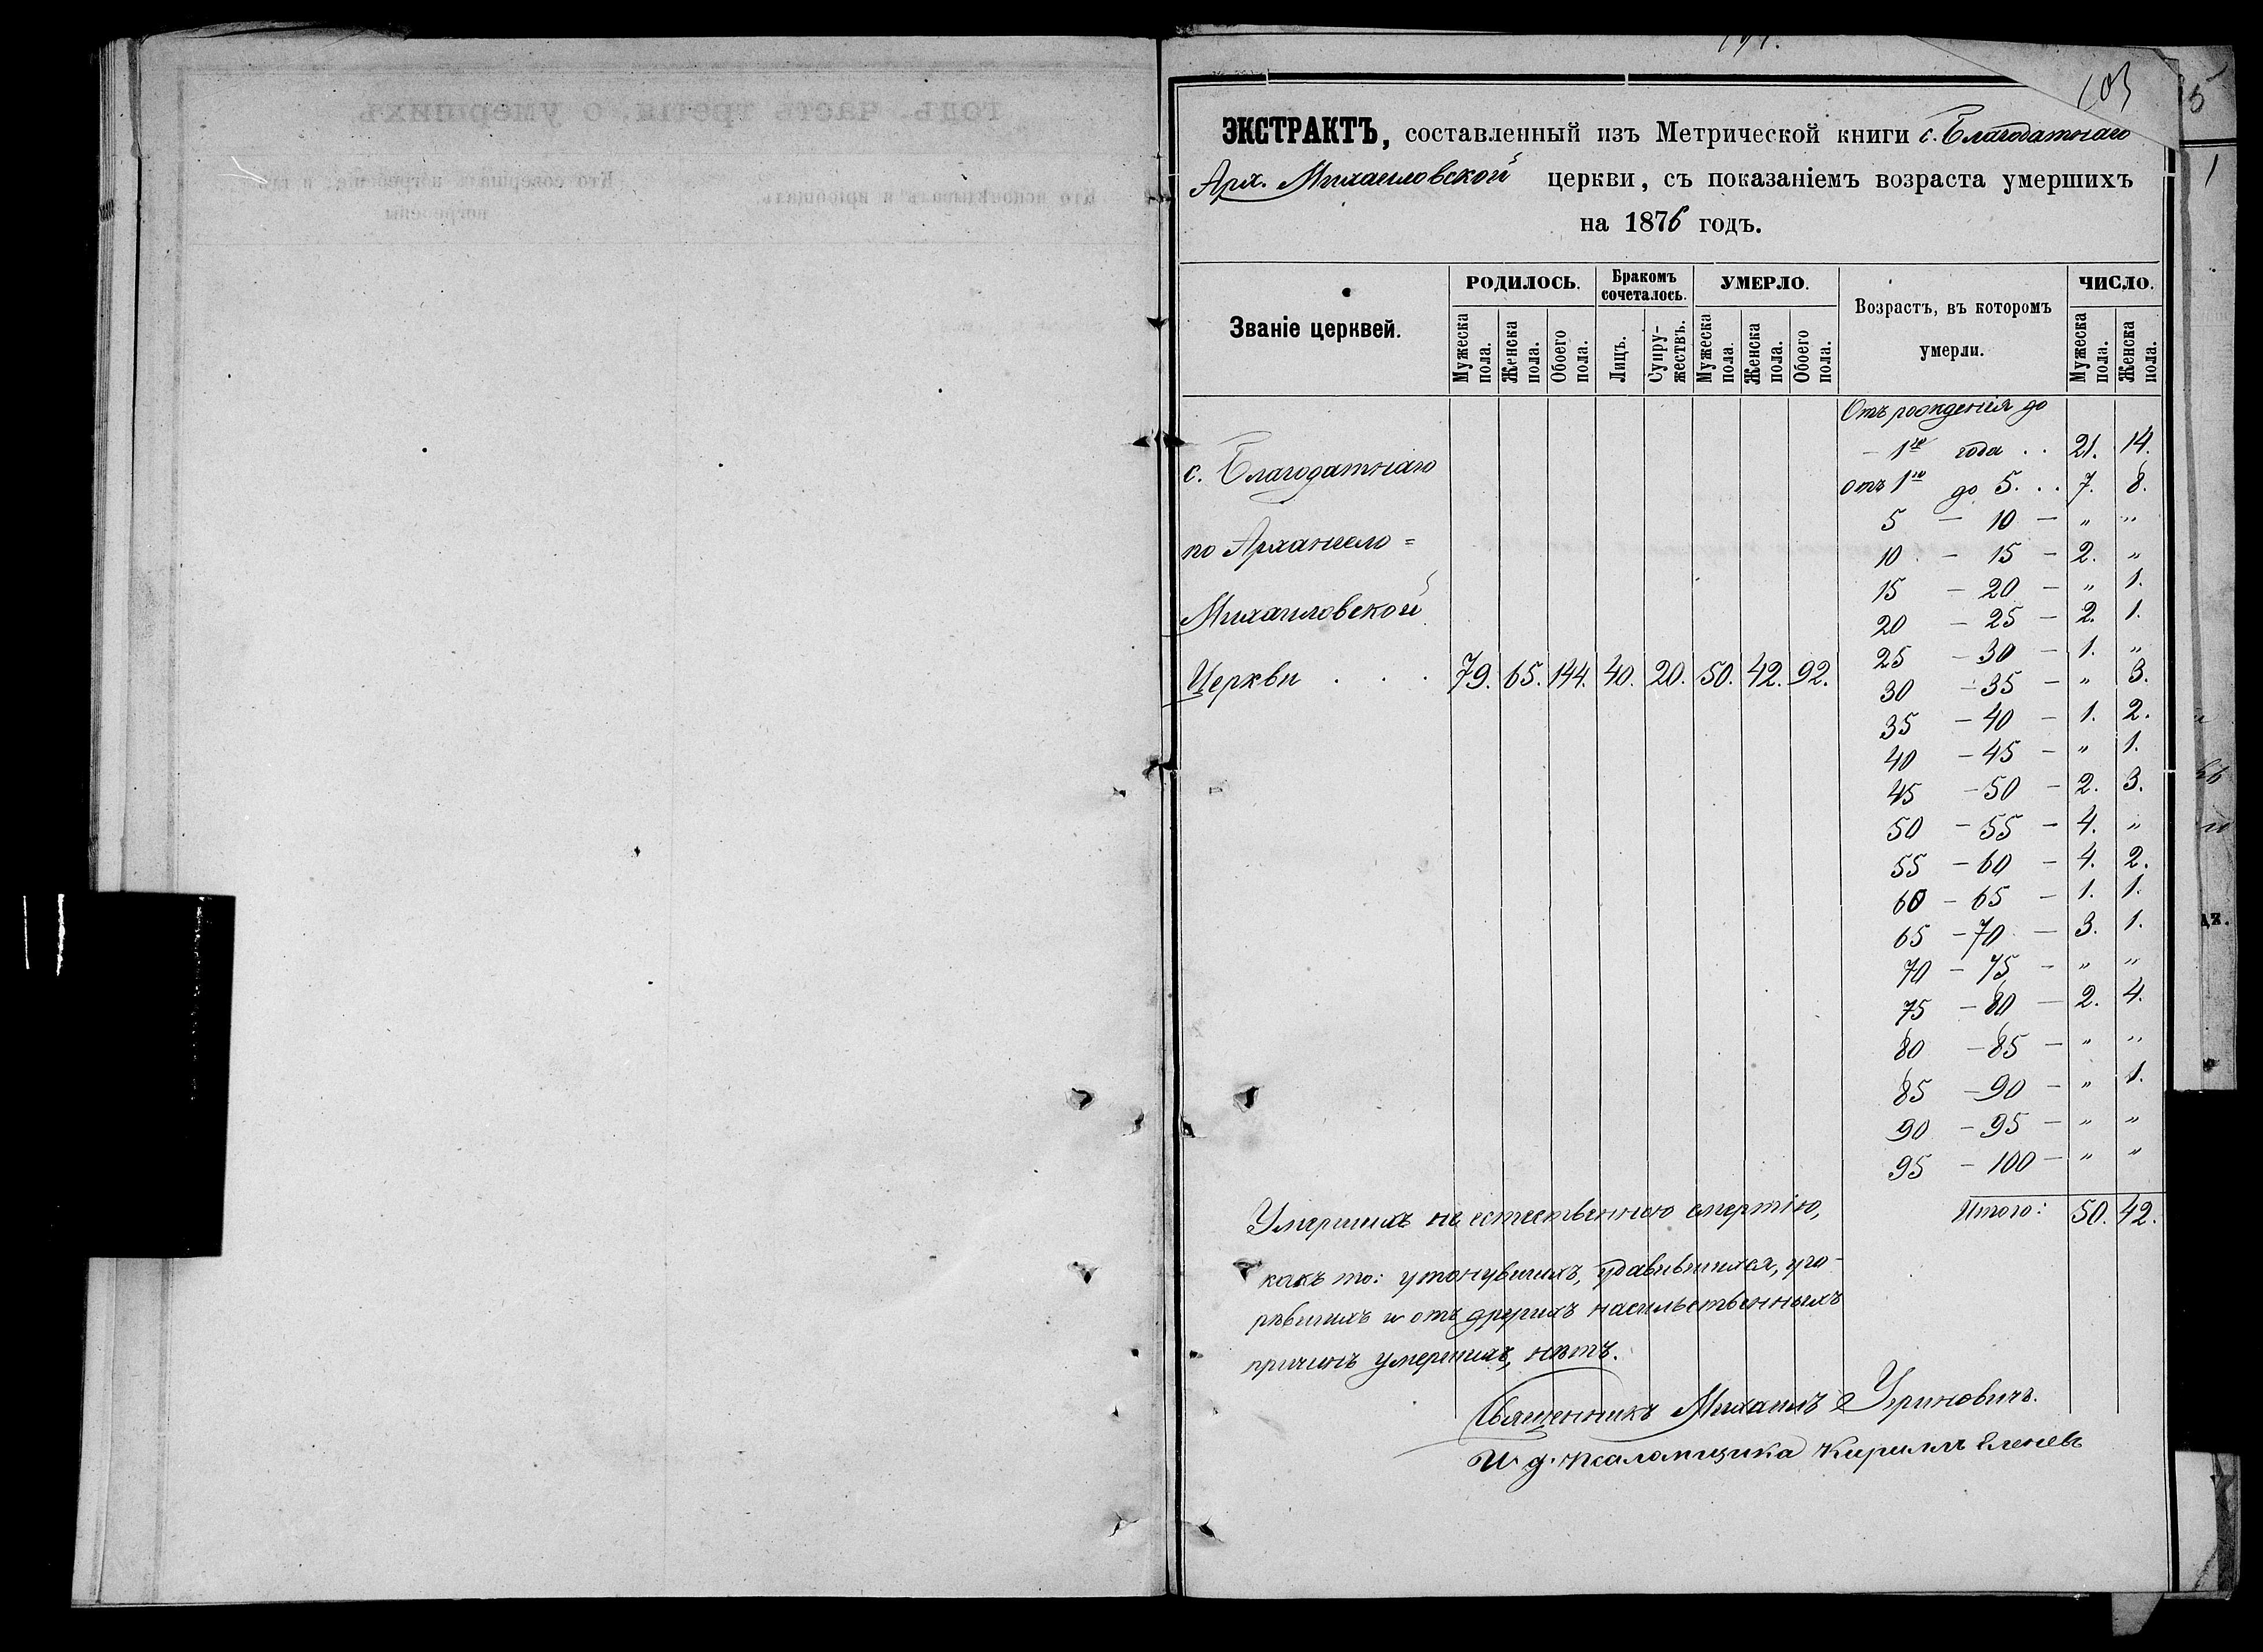 103
5
ЭКСТРАКТЪ, составленный изъ Метрической книги с. Благодатнаго
Арх. Михаиловской церкви, съ показаніемъ возраста умершихъ
на 1876 годъ.
Званіе церквей.
РОДИЛОСЬ.
Бракомъ сочеталось.
УМЕРЛО.
Возрастъ, въ котором умерли.
ЧИСЛО.
Мужеска пола.
Женска пола.
Обоего пола.
Лицъ.
Супружествъ.
Мужеска пола.
Женска пола.
Обоего пола.
Мужеска пола.
Женска пола.
с. Благодатнаго
по Архангело=
Михаиловской
Церкви . . . 79. 65. 144. 40. 20. 50. 42. 92.
Отъ рожденія до
– 1го года . . 21. 14.
отъ 1го до 5. . . 7. 8.
5 – 10 – " "
10 – 15 – 2. "
15 – 20 – " 1.
20 – 25 – 2. 1.
25 – 30 – 1. "
30 – 35 – " 3.
35 – 40 – 1. 2.
40 – 45 – " 1.
45 – 50 – 2. 3.
50 – 55 – 4. "
55 – 60 – 4. 2.
60 – 65 – 1. 1.
65 – 70 – 3. 1.
70 – 75 – " "
75 – 80 – 2. 4.
80 – 85 – " "
85 – 90 – " 1.
90 – 95 – " "
95 – 100 – " "
Итого: 50. 42.
Умершихъ не естественною смертію,
какъ то: утонувшихъ, удавившихся, уго-
рѣвшихъ и отъ другихъ насильственныхъ
причинъ умершихъ, нѣтъ.
Священникъ Михаилъ Угриновичъ.
И. д. псаломщика Кириллъ Еленевъ